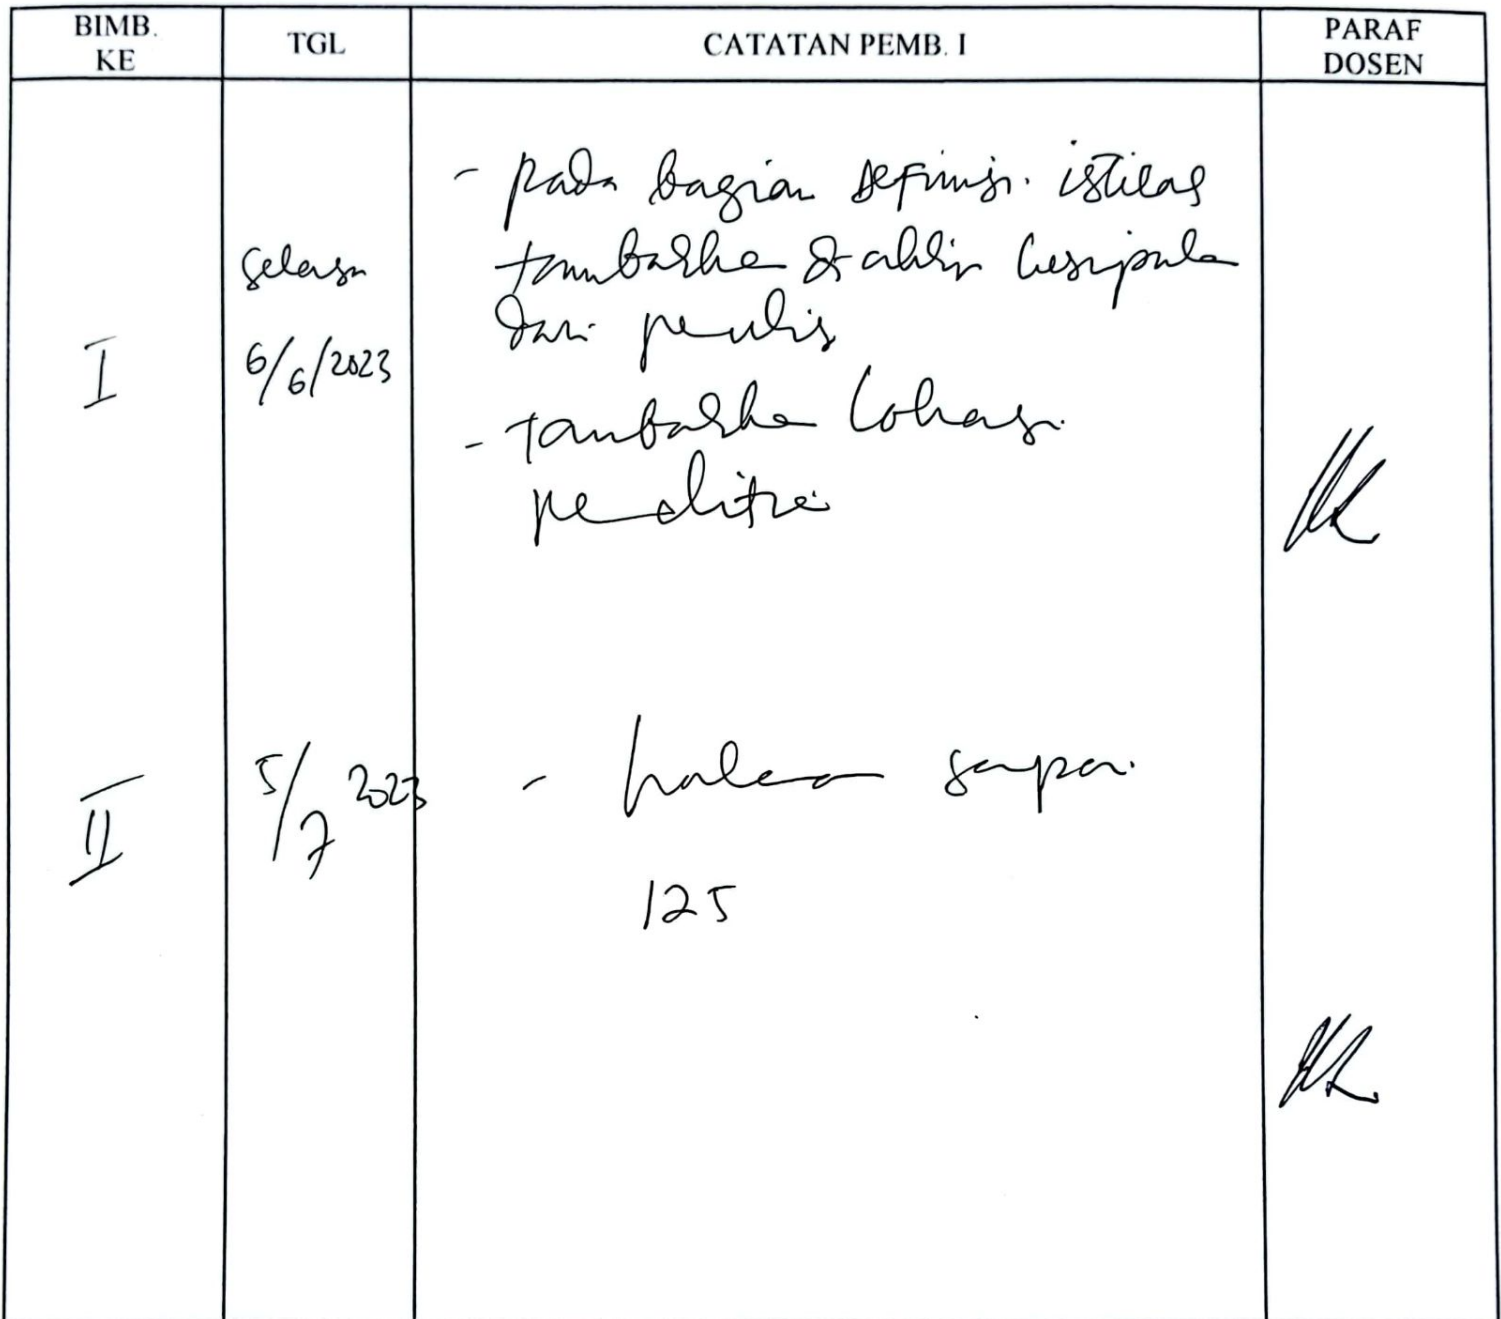 BIMB. KE
TGL
CATATAN PEMB. I
PARAF DOSEN
I
Selasa
6/6/2023
- pada bagian definisi istilah
tambahkan di akhir kesimpulan
dari penulis
- tambahkan lokasi
penelitian
II
5/7 2023
- halaman sampai
125